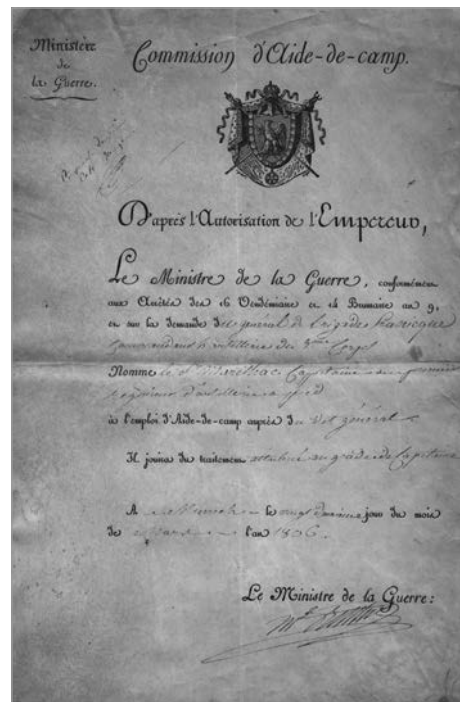 Ministère
de
la Guerre.
Commission d'Aide-de-camp.
D'après l'Autorisation de l'Empereur,
Le Ministre de la Guerre, conformément
aux Arrêtés des 16 Vendémiaire et 14 Brumaire an 9,
et sur la demande du general de brigade
commandant l'artillerie du Corps
Nomme le Sr Capitaine au premier
regiment d'artillerie a pied
à l'emploi d'Aide-de-camp auprès du dit général
Il jouira du traitement attribué au grade de Capitaine
A Munich le vingt jour du mois
de Mars l'an 1806.
Le Ministre de la Guerre: